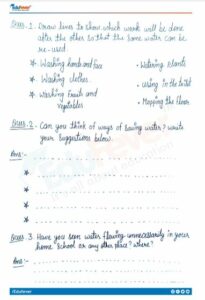 Ques. 1. Draw lines to show which work will be done
after the other so that the same water can be
re-used
* Washing hands and face
• Watering plants
* Washing clothes.
• using in the toilet
* Washing fruits and
vegetables
• Mopping the floor
Ques. 2 - Can you think of ways of saving water? write
your suggestions below.
Ans:-
*
*
*
*
Ques. 3 Have you seen water flowing unnecessarily in your
home, School or any other place? where?
Ans:-